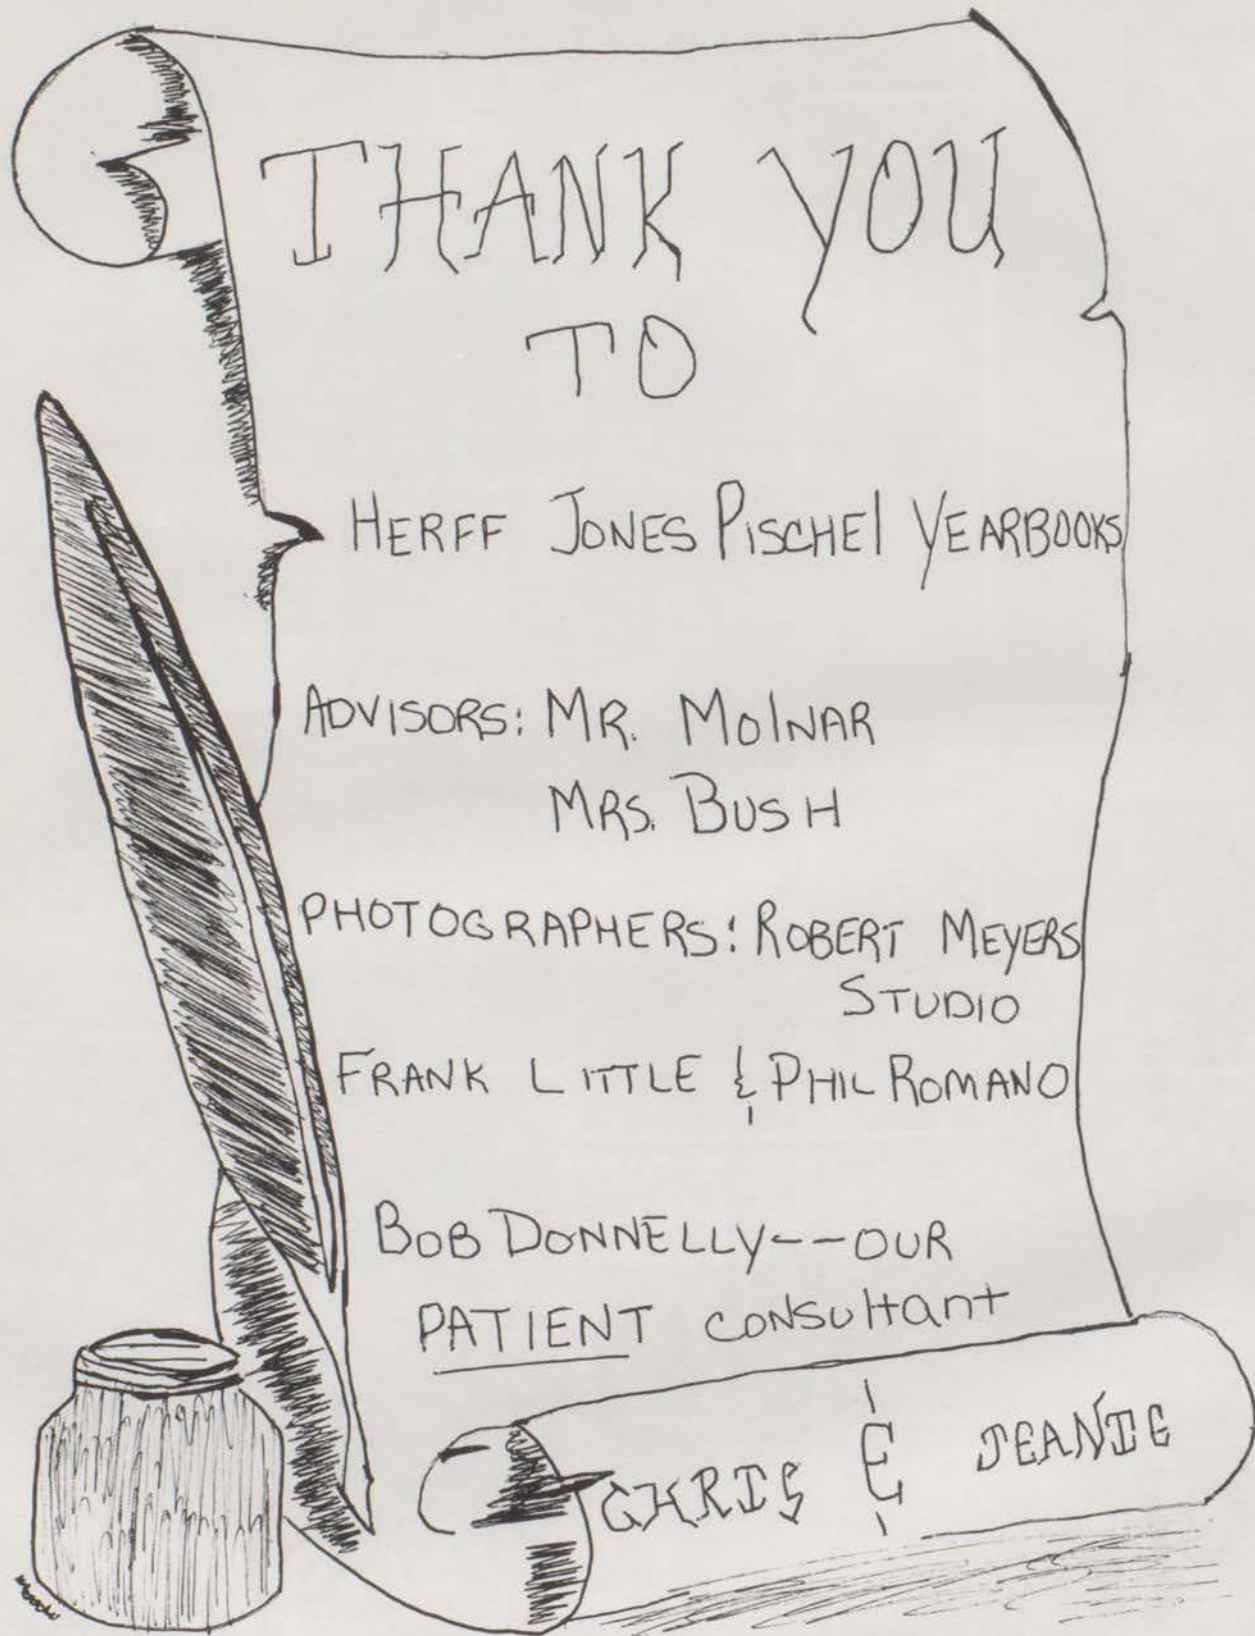 THANK YOU
TO
HERFF JONES PISCHEl YEARBOOKS
ADVISORS: MR. MOlNAR
MRS. BUSH
PHOTOGRAPHERS: ROBERT MEYERS
STUDIO
FRANK LITTLE & PHIL ROMANO
BOB DONNELLY--OUR
PATIENT CONSUltant
CHRIS & JEANIE